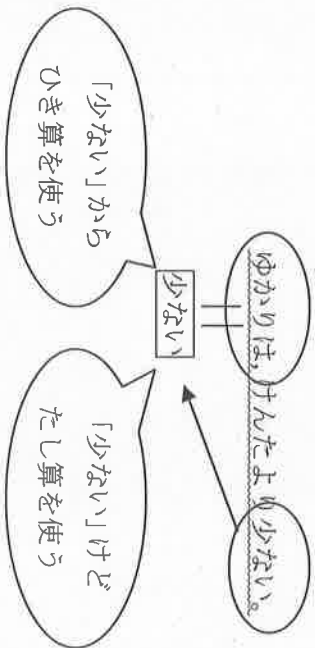 ゆかりは，けんたより少ない。
少ない
「少ない」から
ひき算を使う
「少ない」けど
たし算を使う